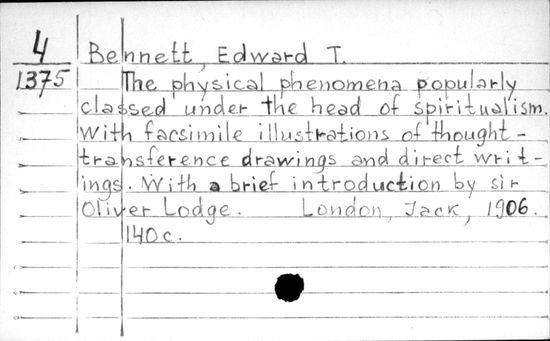 4
1375
Bennett, Edward T.
The physical phenomena popularly
classed under the head of spiritualism.
With facsimile illustrations of thought-
transference drawings and direct writ-
ings. With a brief introduction by sir
Oliver Lodge. London, Jack, 1906.
140 c.